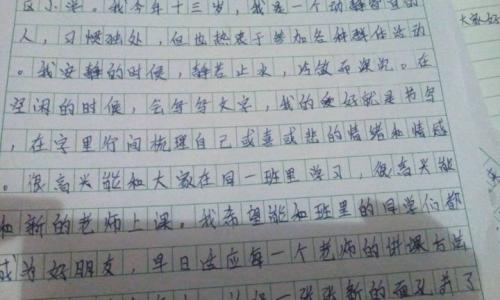 小 。我今年十三岁，我是一个动静皆宜的
人，习惯独处，但也热衷于参加各种集体活动
。我安静的时候，静若止水，沉敛而深沉。在
空闲的时候，会写写文字，我的爱好就是书写
，在字里行间梳理自己或喜或悲的情绪和情感
。很高兴能和大家在同一班里学习，很高兴能
和新的老师上课。我希望能和班里的同学们都
成为好朋友，早日适应每一个老师的讲课方法
一张张新的面孔
大家好